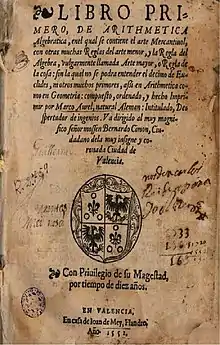 LIBRO PRI-
MERO, DE ARITHMETICA
Algebratica, enel qual se contiene el arte Mercantiuol,
con otras muchas Reglas del arte menor, y la Regla del
Algebra, vulgarmente llamada Arte mayor, o Regla de
la cosa: sin la qual no se podra entender el decimo de Eu-
clides, ni otros muchos primores, assi en Arithmetica co-
mo en Geometria: compuesto, ordenado, y hecho Impri-
mir por Marco Aurel, natural Aleman: Intitulado, Des-
pertador de ingenios. Va dirigido al muy magni-
fico señor mossen Bernardo Cimon, Ciu-
dadano dela muy insigne y co-
ronada Ciudad de
Valencia.
Con Priuilegio de su Magestad,
por tiempo de diez años.
EN VALENCIA,
En casa de Ioan de Mey, Flandro,
Año. 1552.